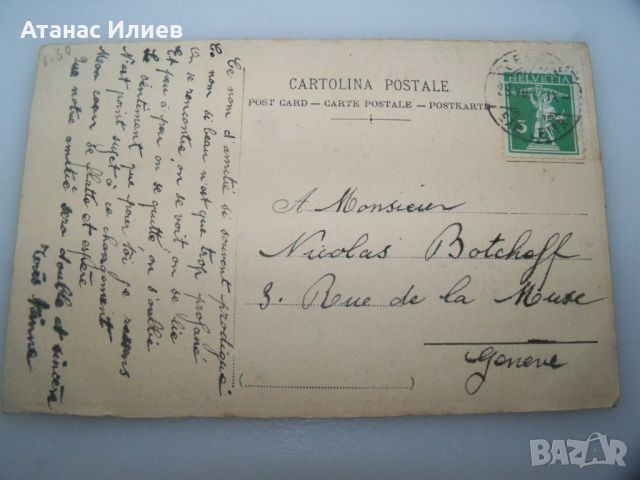 Атанас Илиев
CARTOLINA POSTALE
POST CARD — CARTE POSTALE — POSTKARTE
HELVETIA
5
A Monsieur
Nicolas Botcheff
3. Rue de la Muse
Genève
Ce nom d'amitié si souvent prodigué
Ce nom si beau n'est que trop profané
On se rencontre, on se voit on se lie
Et peu à peu on se quitte on s'oublie
Le sentiment que pour toi je ressens
N'est point sujet à ce changement
Mon cœur se flatte et espère
Que notre amitié sera durable et sincère
BAZAR